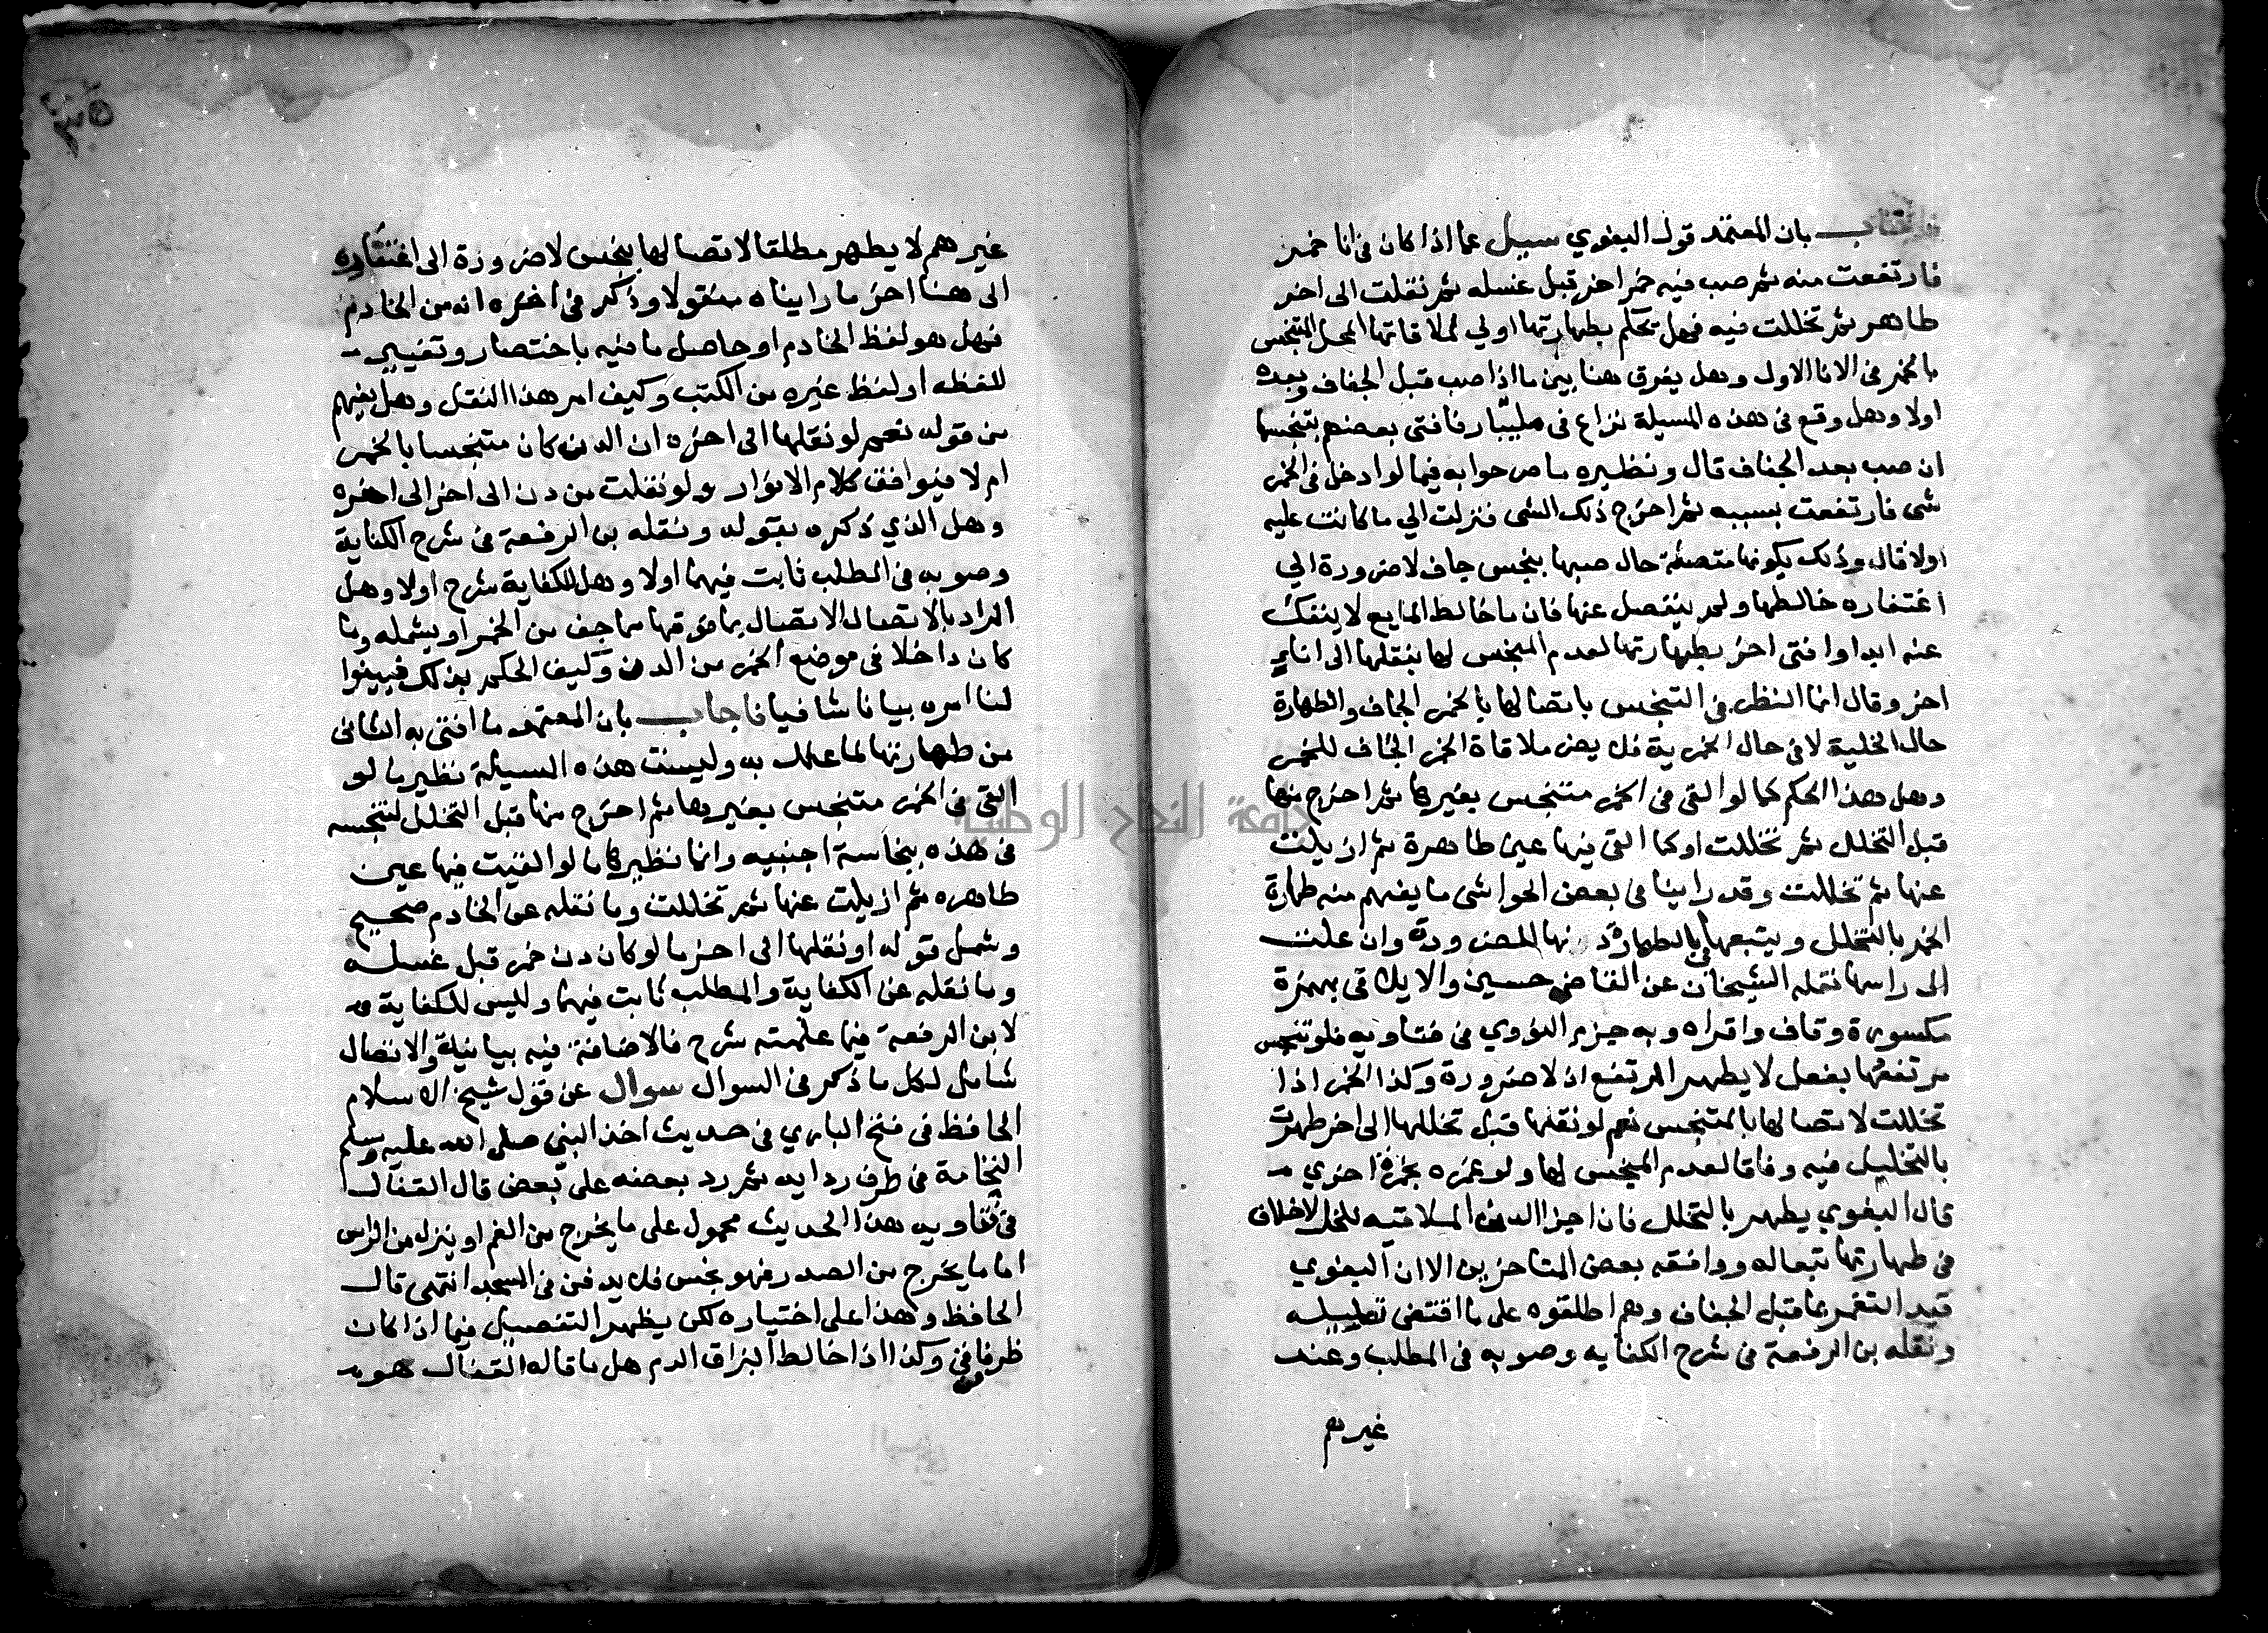 بان المعتمد قول البغوي سيل عما اذا كان في انا خمر
فارتفعت منه ثم صب فيه خمرا اخر قبل غسله ثم نقلت الى اخر
طاهر ثم تخللت فيه فهل تحكم بطهارتها اولي لملاقاتها المحل المتنجس
بالخمر في الانا الاول وهل يفرق هنا بين ما اذا صب قبل الجفاف وبعده
اولا وهل وقع في هذه المسيلة نزاع في مليبار فافتى بعضهم بتنجسها
ان صب بعد الجفاف قال ونظيره ما صرحوا به فيما لو ادخل في الخمر
شي فارتفعت بسببه ثم اخرج ذلك الشي فنزلت الي ما كانت عليه
اولا قال وذلك بكونها متصلة حال صبها بنجس جاف لا ضرورة الي
اغتفاره خالطها ولم ينفصل عنها فان ما خالط المايع لا ينفك
عنه ابدا وافتى اخر بطهارتها لعدم المنجس لها بنقلها الى اناء
اخر وقال انما النظر في التنجس باتصالها بالخمر الجاف والطهارة
حال الخلية لا في حال الخمرية فلا يضر ملاقاة الخمر الجاف للخمر
وهل هذا الحكم كما لو القي في الخمر متنجس بغيرها ثم اخرج منها
قبل التخلل ثم تخللت او كما القي فيها عين طاهرة ثم ازيلت
عنها ثم تخللت وقد راينا في بعض الحواشي ما يفهم منه طهارة
الخمر بالتخلل ويتبعها في الطهارة دنها للضرورة وان علت
الى راسها نقله الشيخان عن القاضي حسين والايلاقي بهمزة
مكسورة وقاف واقراه وبه جزم النووي في فتاويه فلو تنجس
مرتفعها بفعل لا يطهر المرتفع اذ لا ضرورة وكذا الخمر اذا
تخللت لاتصالها بالمتنجس نعم لو نقلها قبل تخللها الى اخر طهرت
بالتخليل فيه وفاقا لعدم المنجس لها ولو غمره بخمرة اخري
قال البغوي يطهر بالتخلل فان اجزا الدن الملاقية للخل لا خلاف
في طهارتها تبعا له ووافقه بعض المتاخرين الا ان البغوي
قيد التغمر بما قبل الجفاف وهم اطلقوه على ما اقتضى تعليله
ونقله بن الرفعة في شرح الكفايه وصوبه في المطلب وعند
غيرهم
٣٥
غيرهم لا يطهر مطلقا لاتصالها بنجس لا ضرورة الى اغتفاره
الى هنا اخر ما رايناه منقولا وذكر في اخره انه من الخادم
فهل هو لفظ الخادم او حاصل ما فيه باختصار وتغيير
للفظه او لفظ غيره من الكتب وكيف امر هذا النقل وهل يفهم
من قوله نعم لو نقلها الى اخره ان الدن كان متنجسا بالخمر
ام لا فيوافق كلام الانوار ولو نقلت من دن الى اخر الى اخره
وهل الذي ذكره بقوله ونقله بن الرفعة في شرح الكفاية
وصوبه في المطلب ثابت فيهما اولا وهل للكفاية شرح اولا وهل
المراد بالاتصال الاتصال بما فوقها مما جف من الخمر او يشمله وما
كان داخلا في موضع الخمر من الدن وكيف الحكم بذلك فبينوا
لنا امره بيانا شافيا فاجاب بان المعتمد ما افتى به الثاني
من طهارتها لما علل به وليست هذه المسيلة نظير ما لو
القي في الخمر متنجس بغيرها ثم اخرج منها قبل التخلل لتنجسه
في هذه بنجاسة اجنبيه وانما نظيرها ما لو القيت فيها عين
طاهره ثم ازيلت عنها ثم تخللت وما نقله عن الخادم صحيح
وشمل قوله او نقلها الى اخر ما لو كان دن خمر قبل غسله
وما نقله عن الكفاية والمطلب ثابت فيهما وليس للكفاية
لابن الرفعة فيما علمته شرح فالاضافة فيه بيانية والاتصال
شامل لكل ما ذكر في السوال سوال عن قول شيخ الاسلام
الحافظ في فتح الباري في حديث اخذ النبي صلى الله عليه وسلم
النخامة في طرف ردايه ثم رد بعضه على بعض قال القفال
في فتاويه هذا الحديث محمول على ما يخرج من الفم او ينزل من الراس
اما ما يخرج من الصدر فهو نجس فلا يدفن في المسجد انتهى قال
الحافظ وهذا على اختياره لكن يظهر التفصيل فيما اذا كان
ظرفا في وكذا اذا خالط البزاق الدم هل ما قاله القفال هو